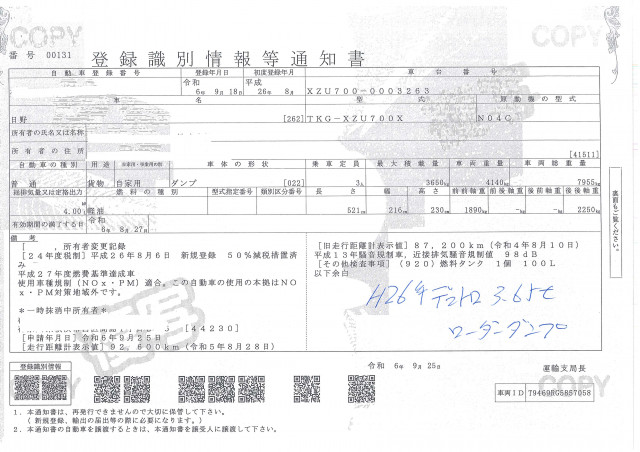 COPY
COPY
番号 00131
登録識別情報等通知書
自動車登録番号
登録年月日
初度登録年月
車台番号
令和
6年 9月 18日
平成
26年 8月
XZU700-0003263
車名
型式
原動機の型式
日野
[262]
TKG-XZU700X
N04C
所有者の氏名又は名称
所有者の住所
[41511]
自動車の種別
用途
自家用・事業用の別
車体の形状
乗車定員
最大積載量
車両重量
車両総重量
普通
貨物
自家用
ダンプ
[022]
3人
3650kg
4140kg
7955kg
総排気量又は定格出力
燃料の種類
型式指定番号
類別区分番号
長さ
幅
高さ
前前軸重
前後軸重
後前軸重
後後軸重
4.00
軽油
521cm
216cm
230cm
1890kg
-kg
-kg
2250kg
有効期間の満了する日
令和
6年 8月 27日
裏面もご覧ください。
備考
, 所有者変更記録
[24年度税制] 平成26年8月6日 新規登録 50%減税措置済
み
平成27年度燃費基準達成車
使用車種規制(NOx・PM)適合。この自動車の使用の本拠はNO
x・PM対策地域外です。
*一時抹消中所有者*
[44230]
[申請年月日] 令和6年9月25日
[走行距離計表示値] 92,600km(令和5年8月28日)
[旧走行距離計表示値] 87,200km(令和4年8月10日)
平成13年騒音規制車, 近接排気騒音規制値 98dB
[その他検査事項] (920)燃料タンク 1個 100L
以下余白
H26年 デュトロ 3.65t
ローダーダンプ
登録識別情報
令和 6年 9月 25日
運輸支局長
COPY
COPY
車両ID
T9469RG5857058
1. 本通知書は、再発行できませんので大切に保管して下さい。
(新規登録、輸出の届出等の際に必要になります。)
2. 本通知書の自動車を譲渡するときは、本通知書を譲受人に譲渡して下さい。